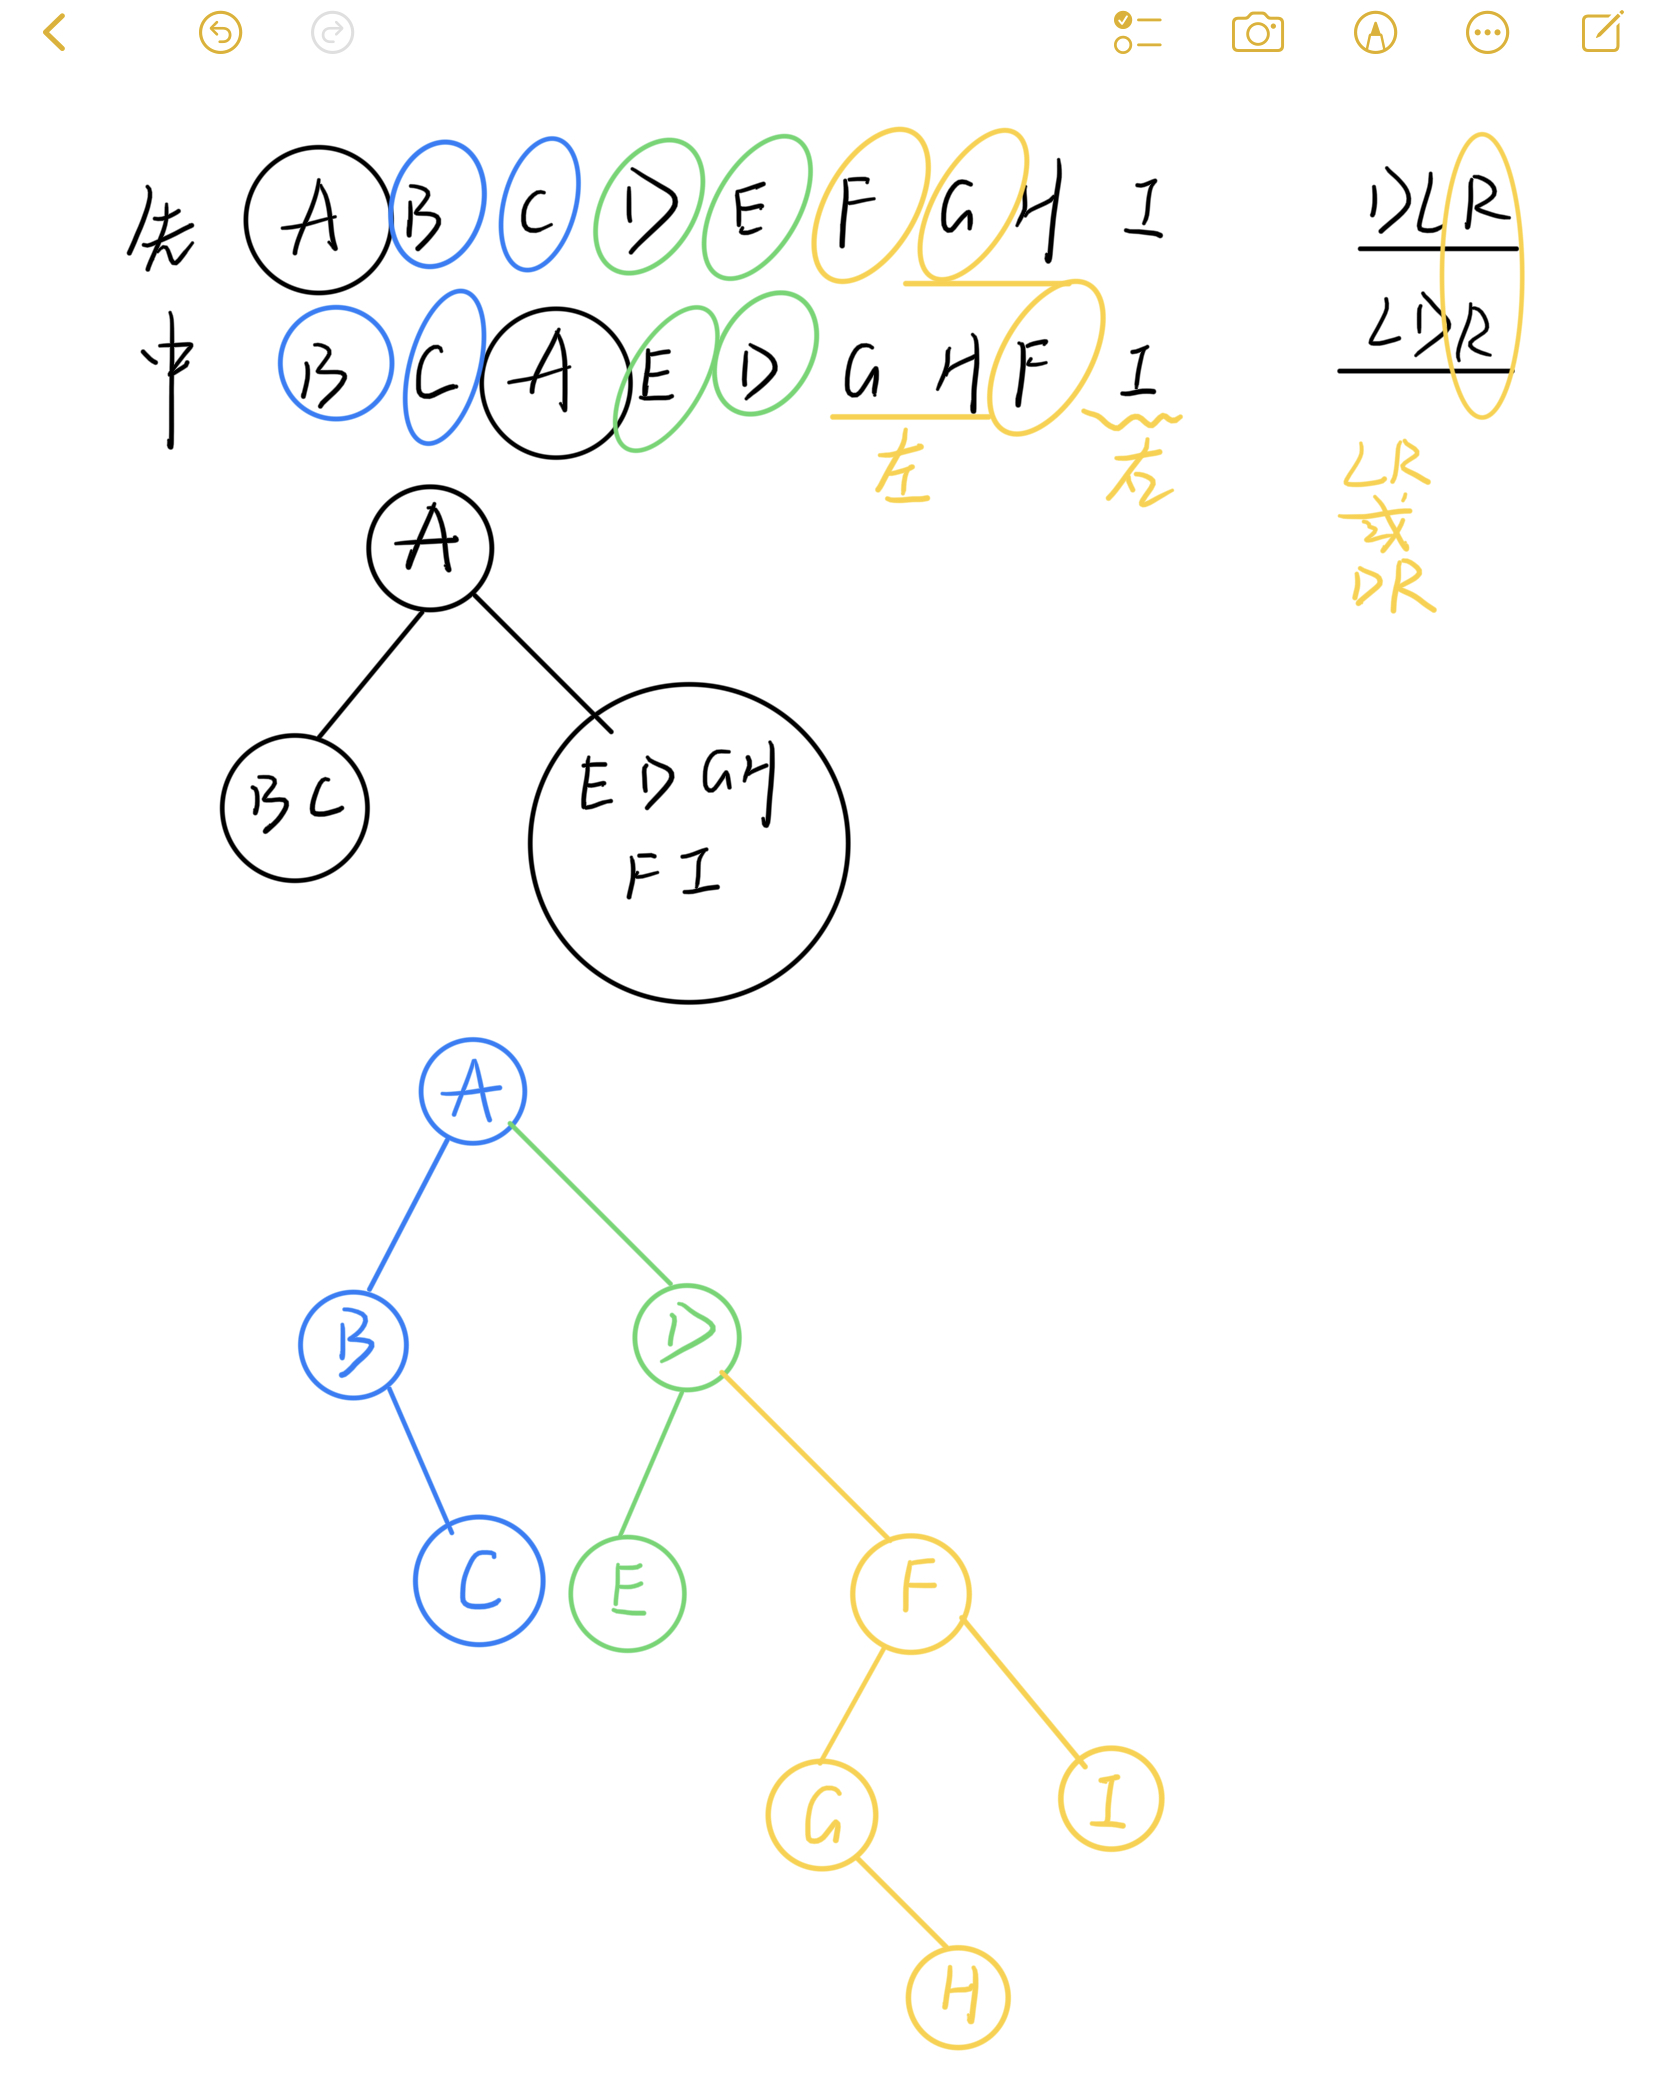 先 A B C D E F G H I
DLR
中 B C A E D G H F I
LDR
左 右
LR
或
DR
A
B C
E D G H
F I
A
B D
C E F
G I
H